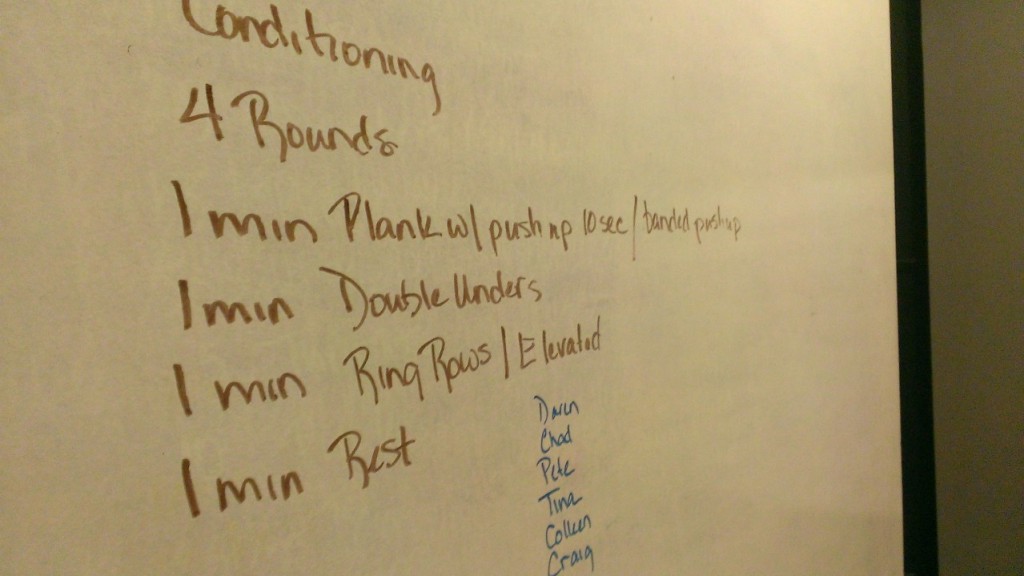 Conditioning
4 Rounds
1 min Plank w/ push up 10 sec / banded push up
1 min Double Unders
1 min Ring Rows / Elevated
1 min Rest
Daren
Chad
Pete
Tina
Colleen
Craig